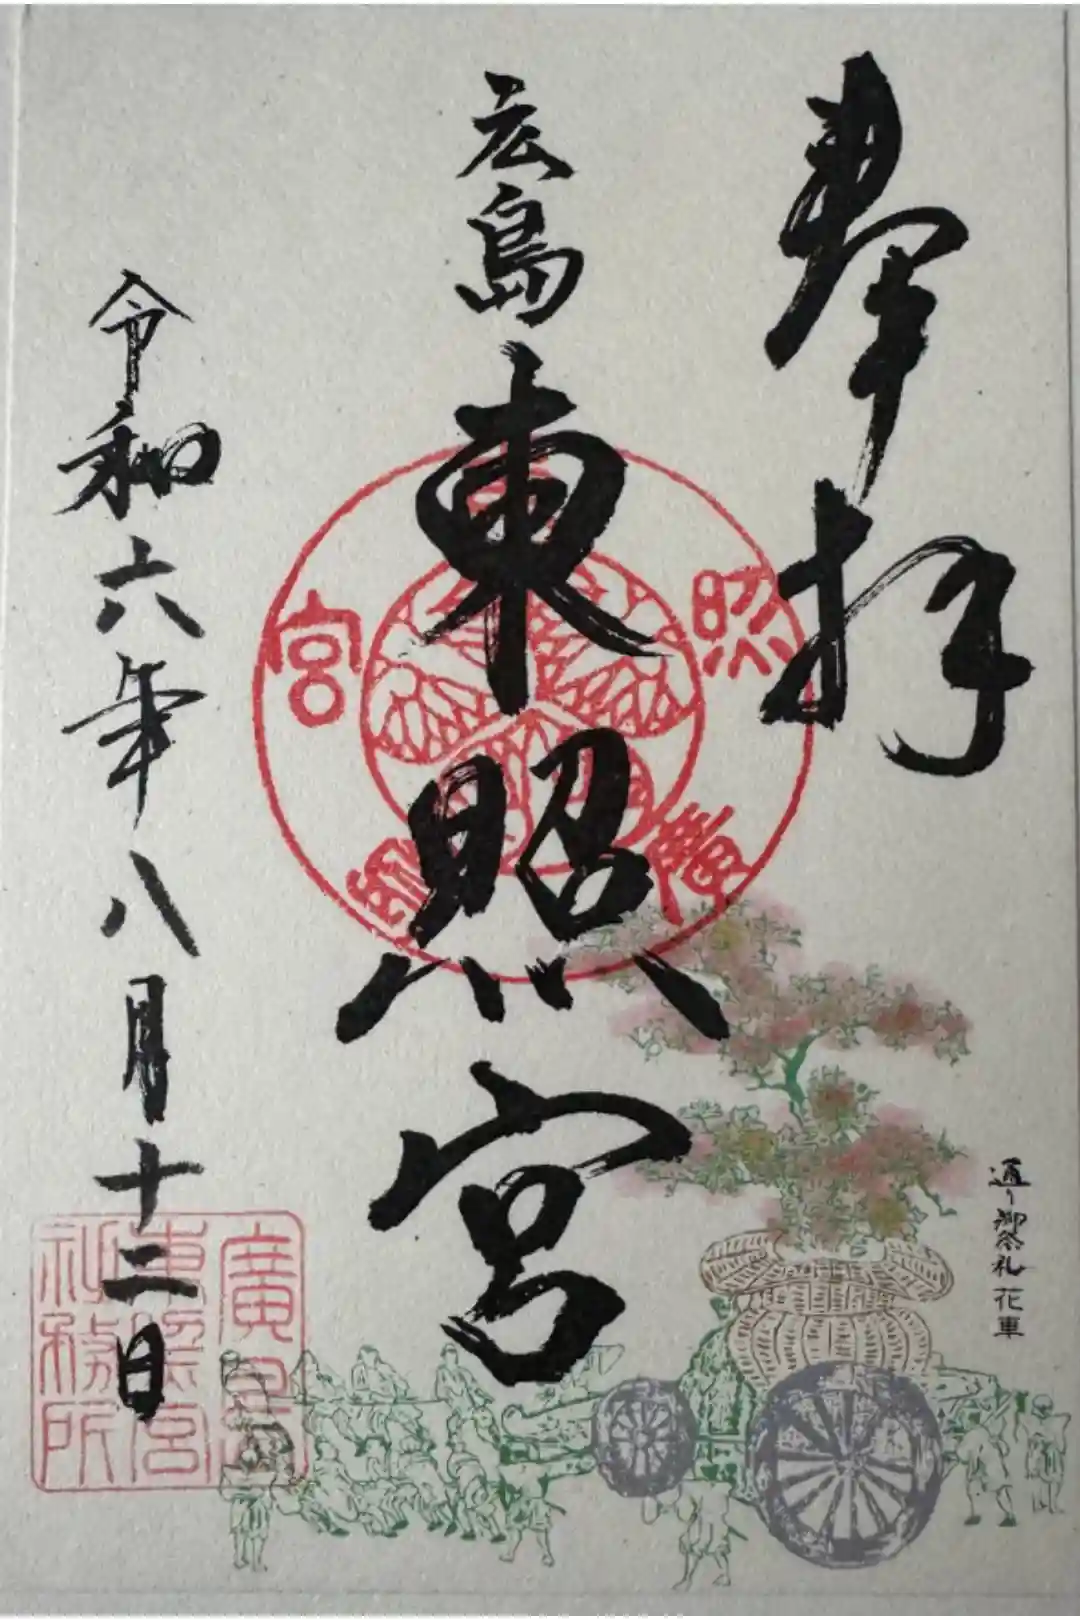 奉拝
広島
東照宮
令和六年八月十二日
通り御祭礼 花車
廣島
東照宮
社務所